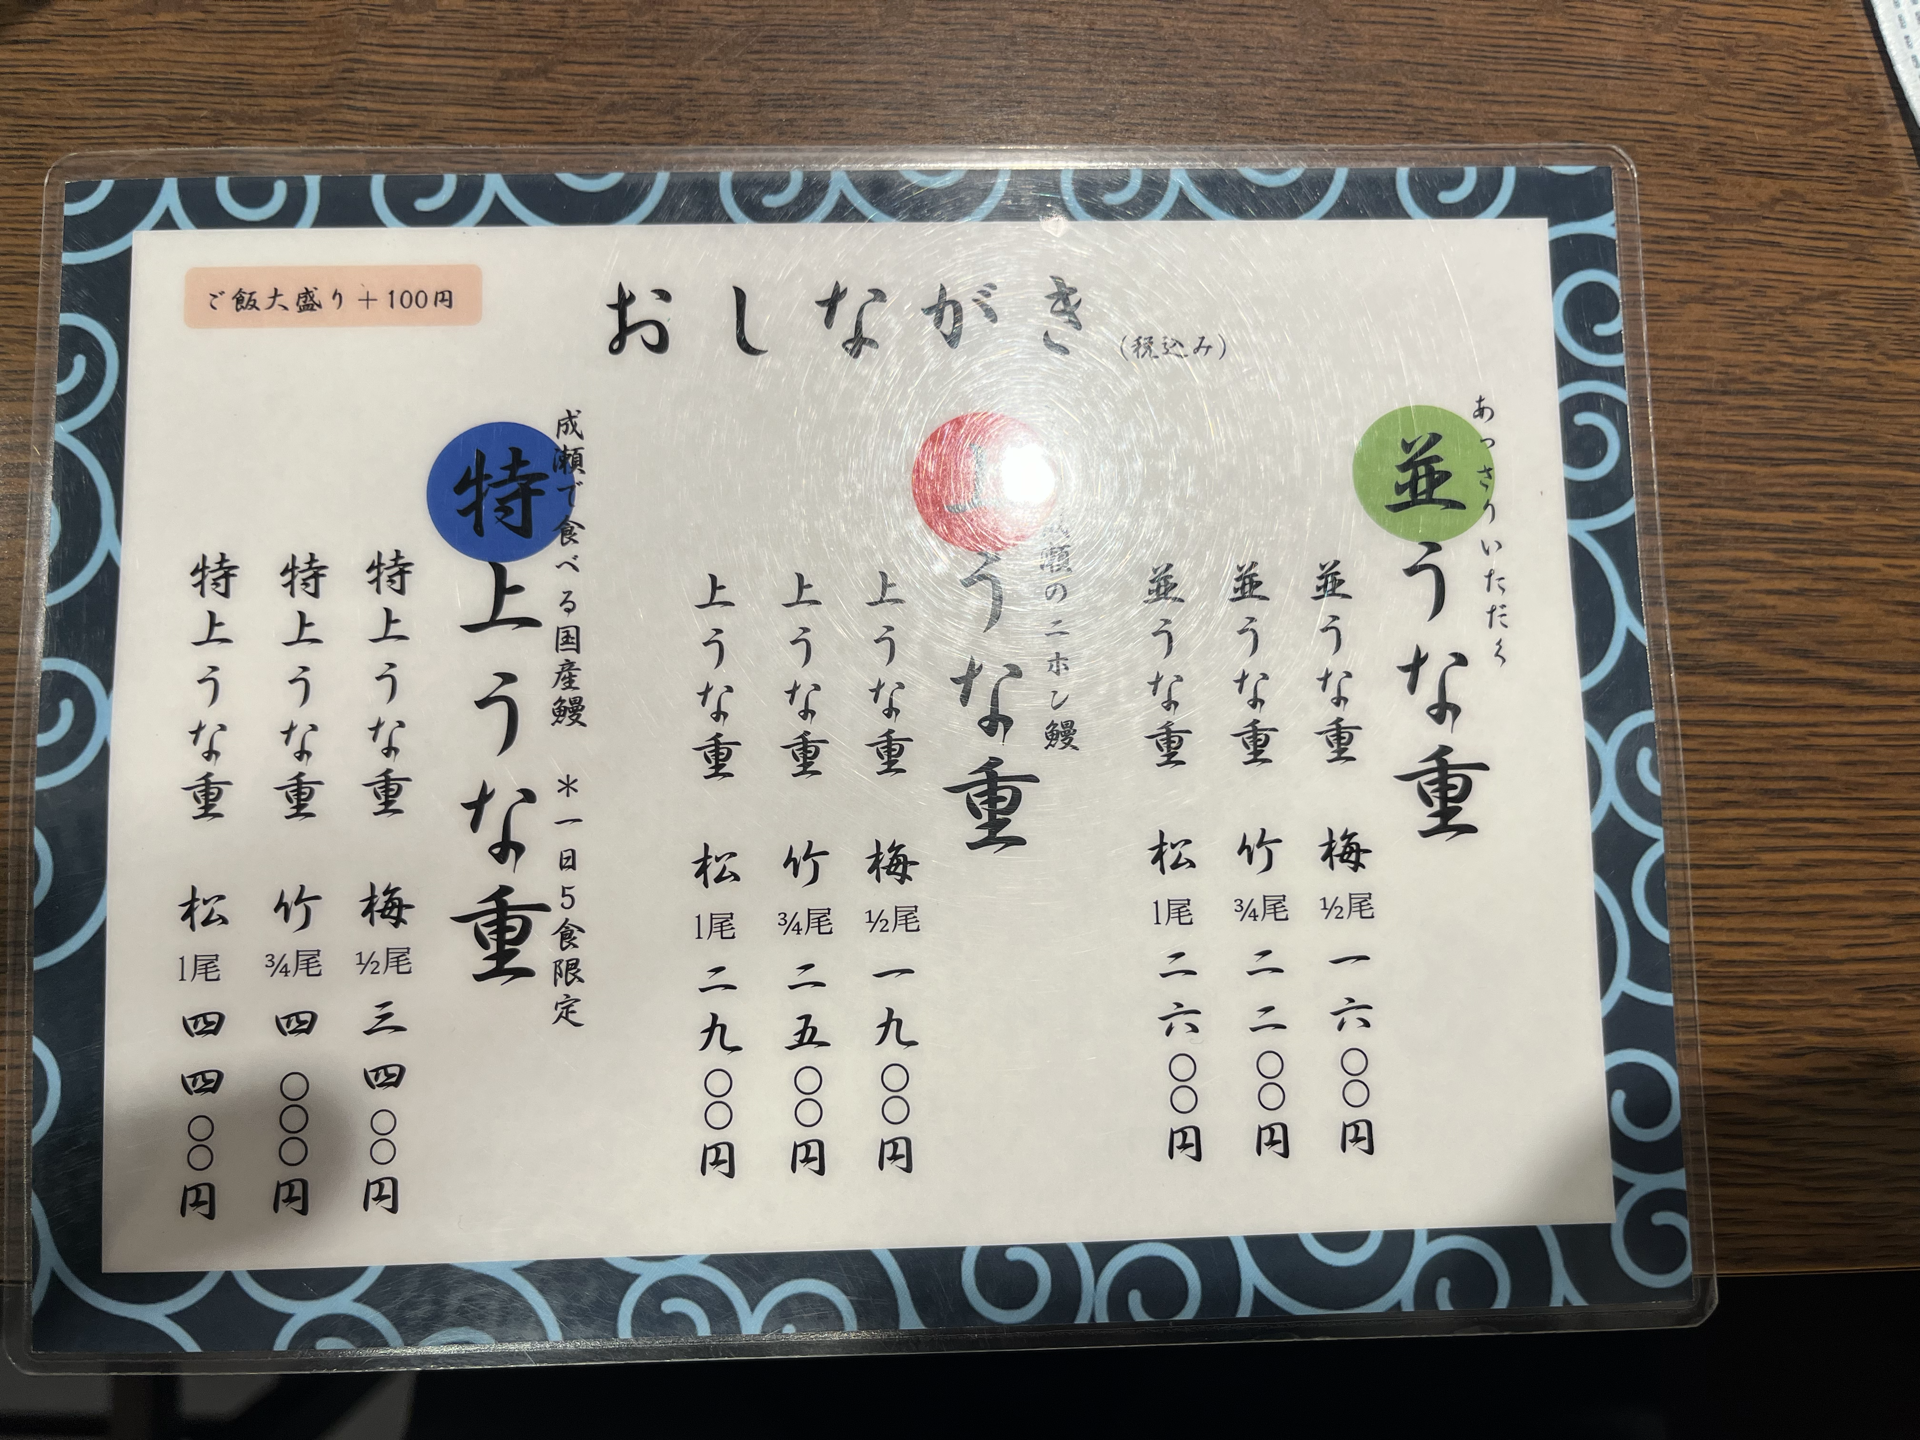 おしながき
(税込み)
ご飯大盛り＋100円
並うな重
あっさりいただく
並うな重 梅 ½尾 一六〇〇円
並うな重 竹 ¾尾 二二〇〇円
並うな重 松 1尾 二六〇〇円
上うな重
瀬のニホン鰻
上うな重 梅 ½尾 一九〇〇円
上うな重 竹 ¾尾 二五〇〇円
上うな重 松 1尾 二九〇〇円
特上うな重
成瀬で食べる国産鰻 ＊一日5食限定
特上うな重 梅 ½尾 三四〇〇円
特上うな重 竹 ¾尾 四〇〇〇円
特上うな重 松 1尾 四四〇〇円